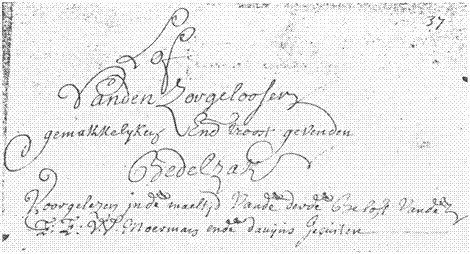 37
Lof
Vanden Zorgeloosen
gemakkelyken End troost gevenden
Bedelzak
Voorgelezen in de maeltyd Vande derde Belofte Vande
E: E: V: V: Moerman ende davyns Jesuiten